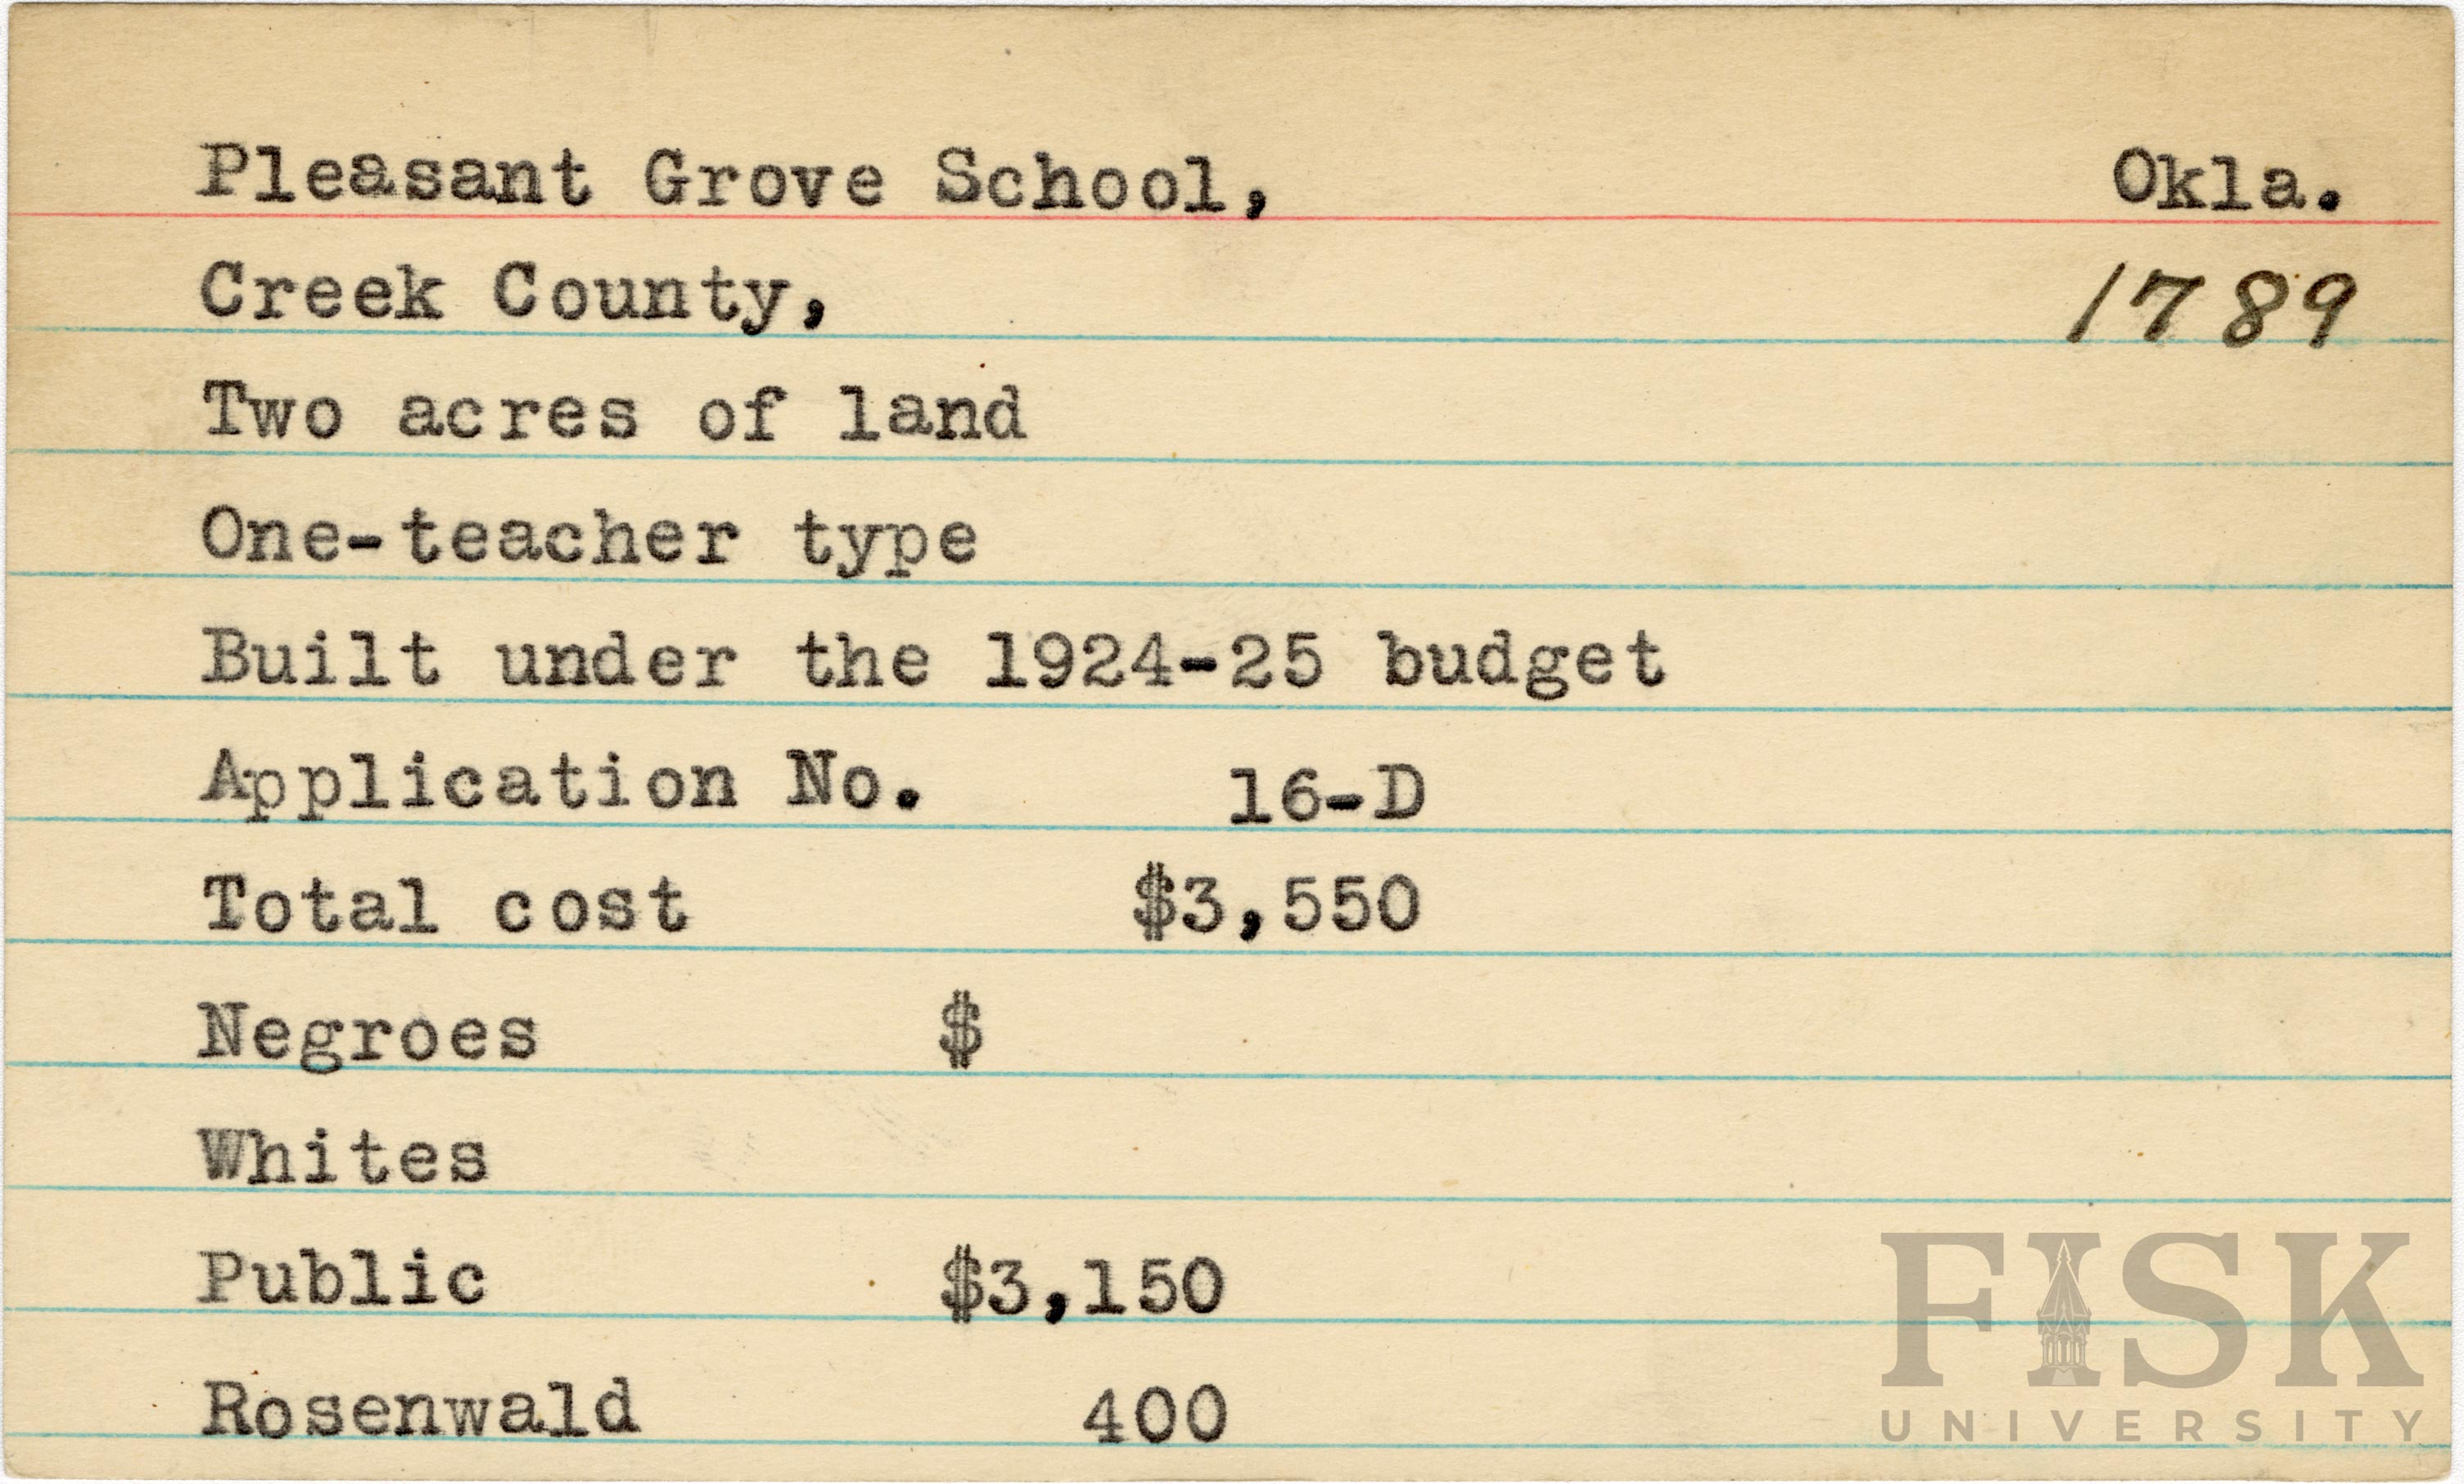 Pleasant Grove School, Okla.
Creek County, 1789
Two acres of land
One-teacher type
Built under the 1924-25 budget
Application No. 16-D
Total cost $3,550
Negroes $
Whites
Public $3,150
Rosenwald 400
FISK
UNIVERSITY